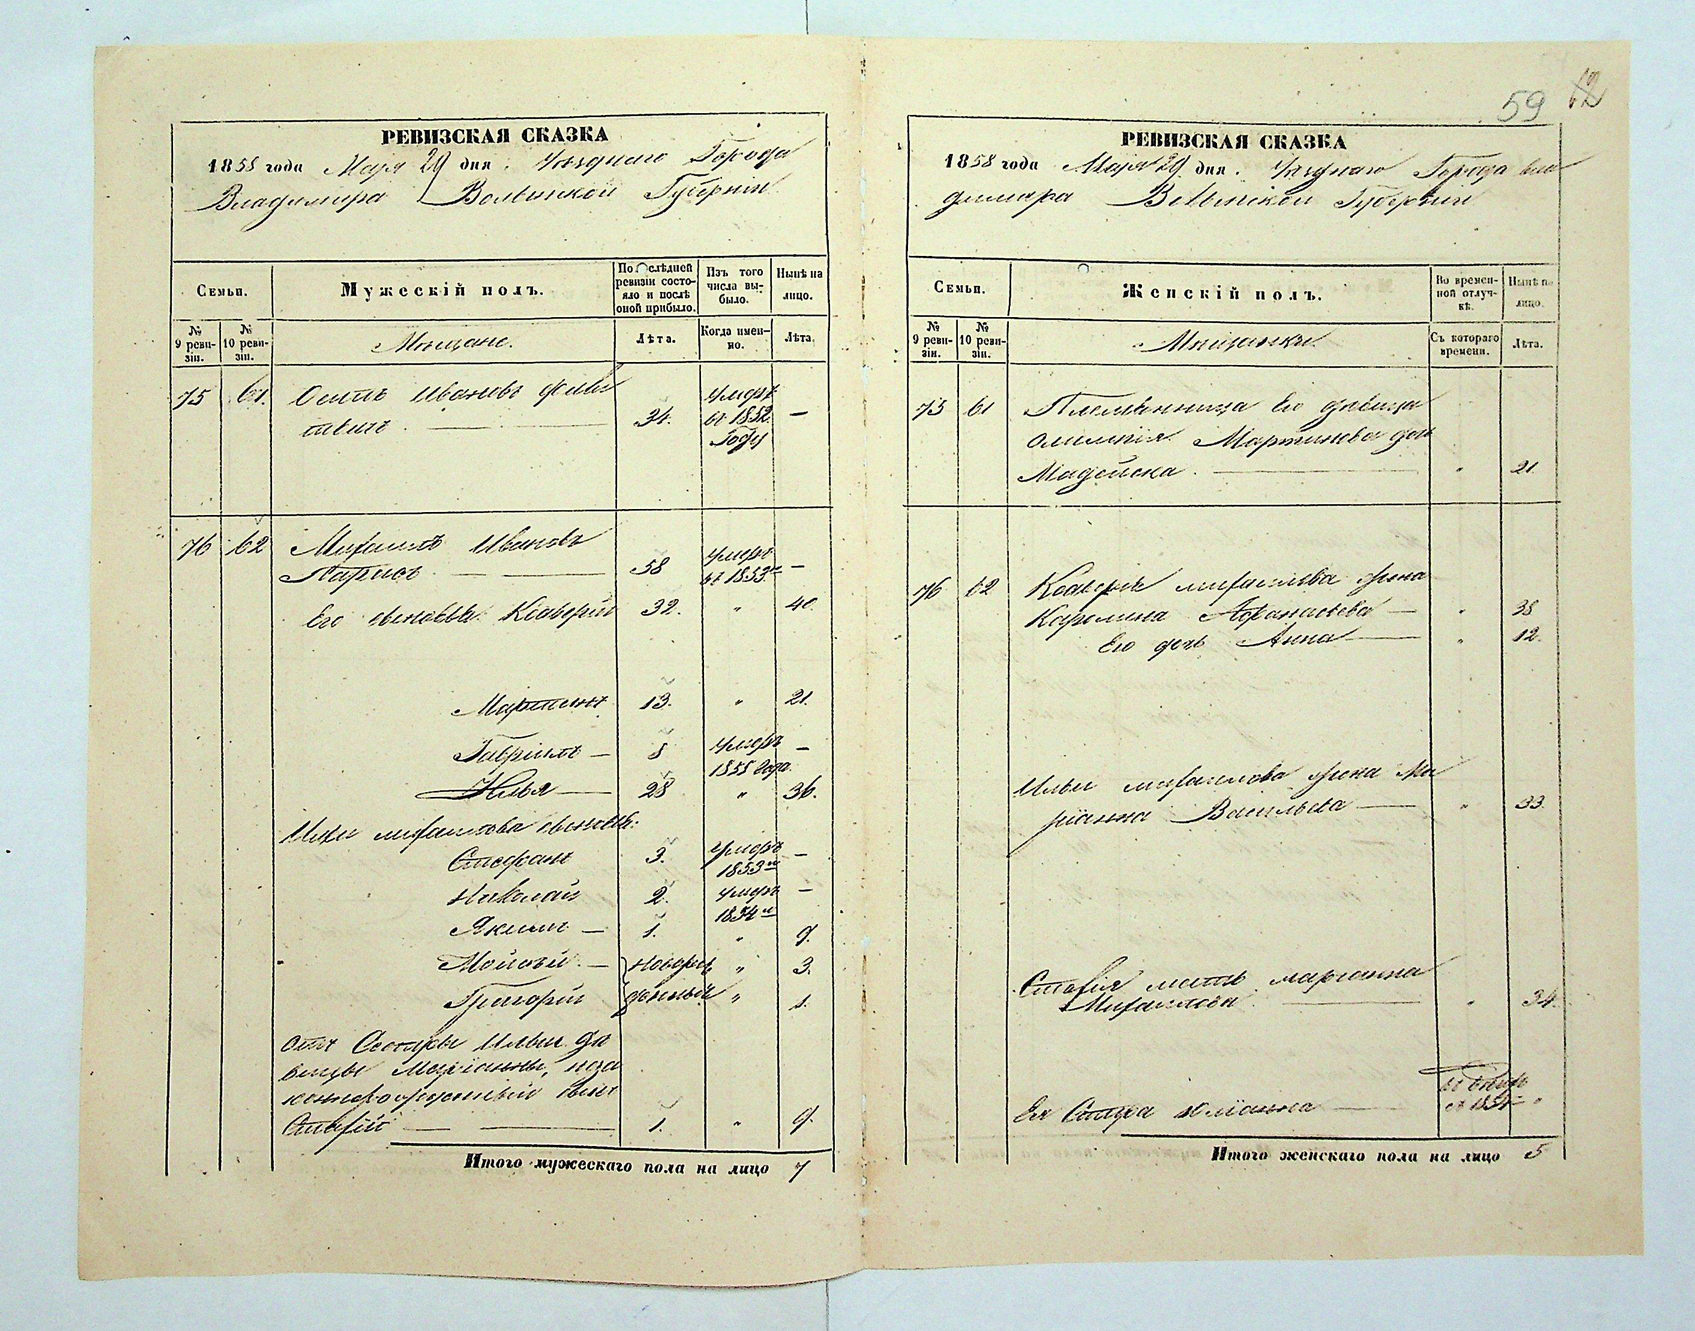 59 62
РЕВИЗСКАЯ СКАЗКА
1858 года Маія 29 дня. Уѣзднаго Города
Владимира Волынской Губерніи
Семьи.
Мужескій полъ.
По послѣдней ревизіи состояло и послѣ оной прибыло.
Изъ того числа выбыло.
Нынѣ на лицо.
№ 9 ревизіи.
№ 10 ревизіи.
Мѣщане.
Лѣта.
Когда именно.
Лѣта.
75 61. Осипъ Ивановъ
34. умеръ въ 1852 Году —
76 62 Михаилъ Ивановъ
58 умеръ въ 1853 —
Его сыновья: Ксаверій 32. " 40.
Мартинъ 13. " 21.
Гавріилъ — 8 умеръ 1858 года. —
Илья — 28 " 36.
Ильи Михайлова сыновья:
Стефанъ 3. умеръ 1853 —
Николай 2. умеръ 1854 —
Якимъ — 1. " 9.
Мойсей — новорож " 3.
Григорій денный " 1.
Сестры Ильи дѣ
вицы Маріанны, неза
коннорожденный сынъ
1. " 9.
Итого мужескаго пола на лицо 7
РЕВИЗСКАЯ СКАЗКА
1858 года Маія 29 дня. Уѣзднаго Города Вла
димира Волынской Губерніи
Семьи.
Женскій полъ.
Во временной отлучкѣ.
Нынѣ на лицо.
№ 9 ревизіи.
№ 10 ревизіи.
Мѣщанки
Съ котораго времени.
Лѣта.
75 61 Племянница Его дѣвица
Олимпія Мартинова дочь
Мадейска. " 21.
76 62 Ксаверія Михайлова жена
Каролина Афанасьева — " 38
Его дочь Анна — " 12.
Ильи Михайлова жена Ма
ріанна Васильева — " 33.
Михайлова " 34.
Ея Сестра Юліанна —
Итого женскаго пола на лицо 5